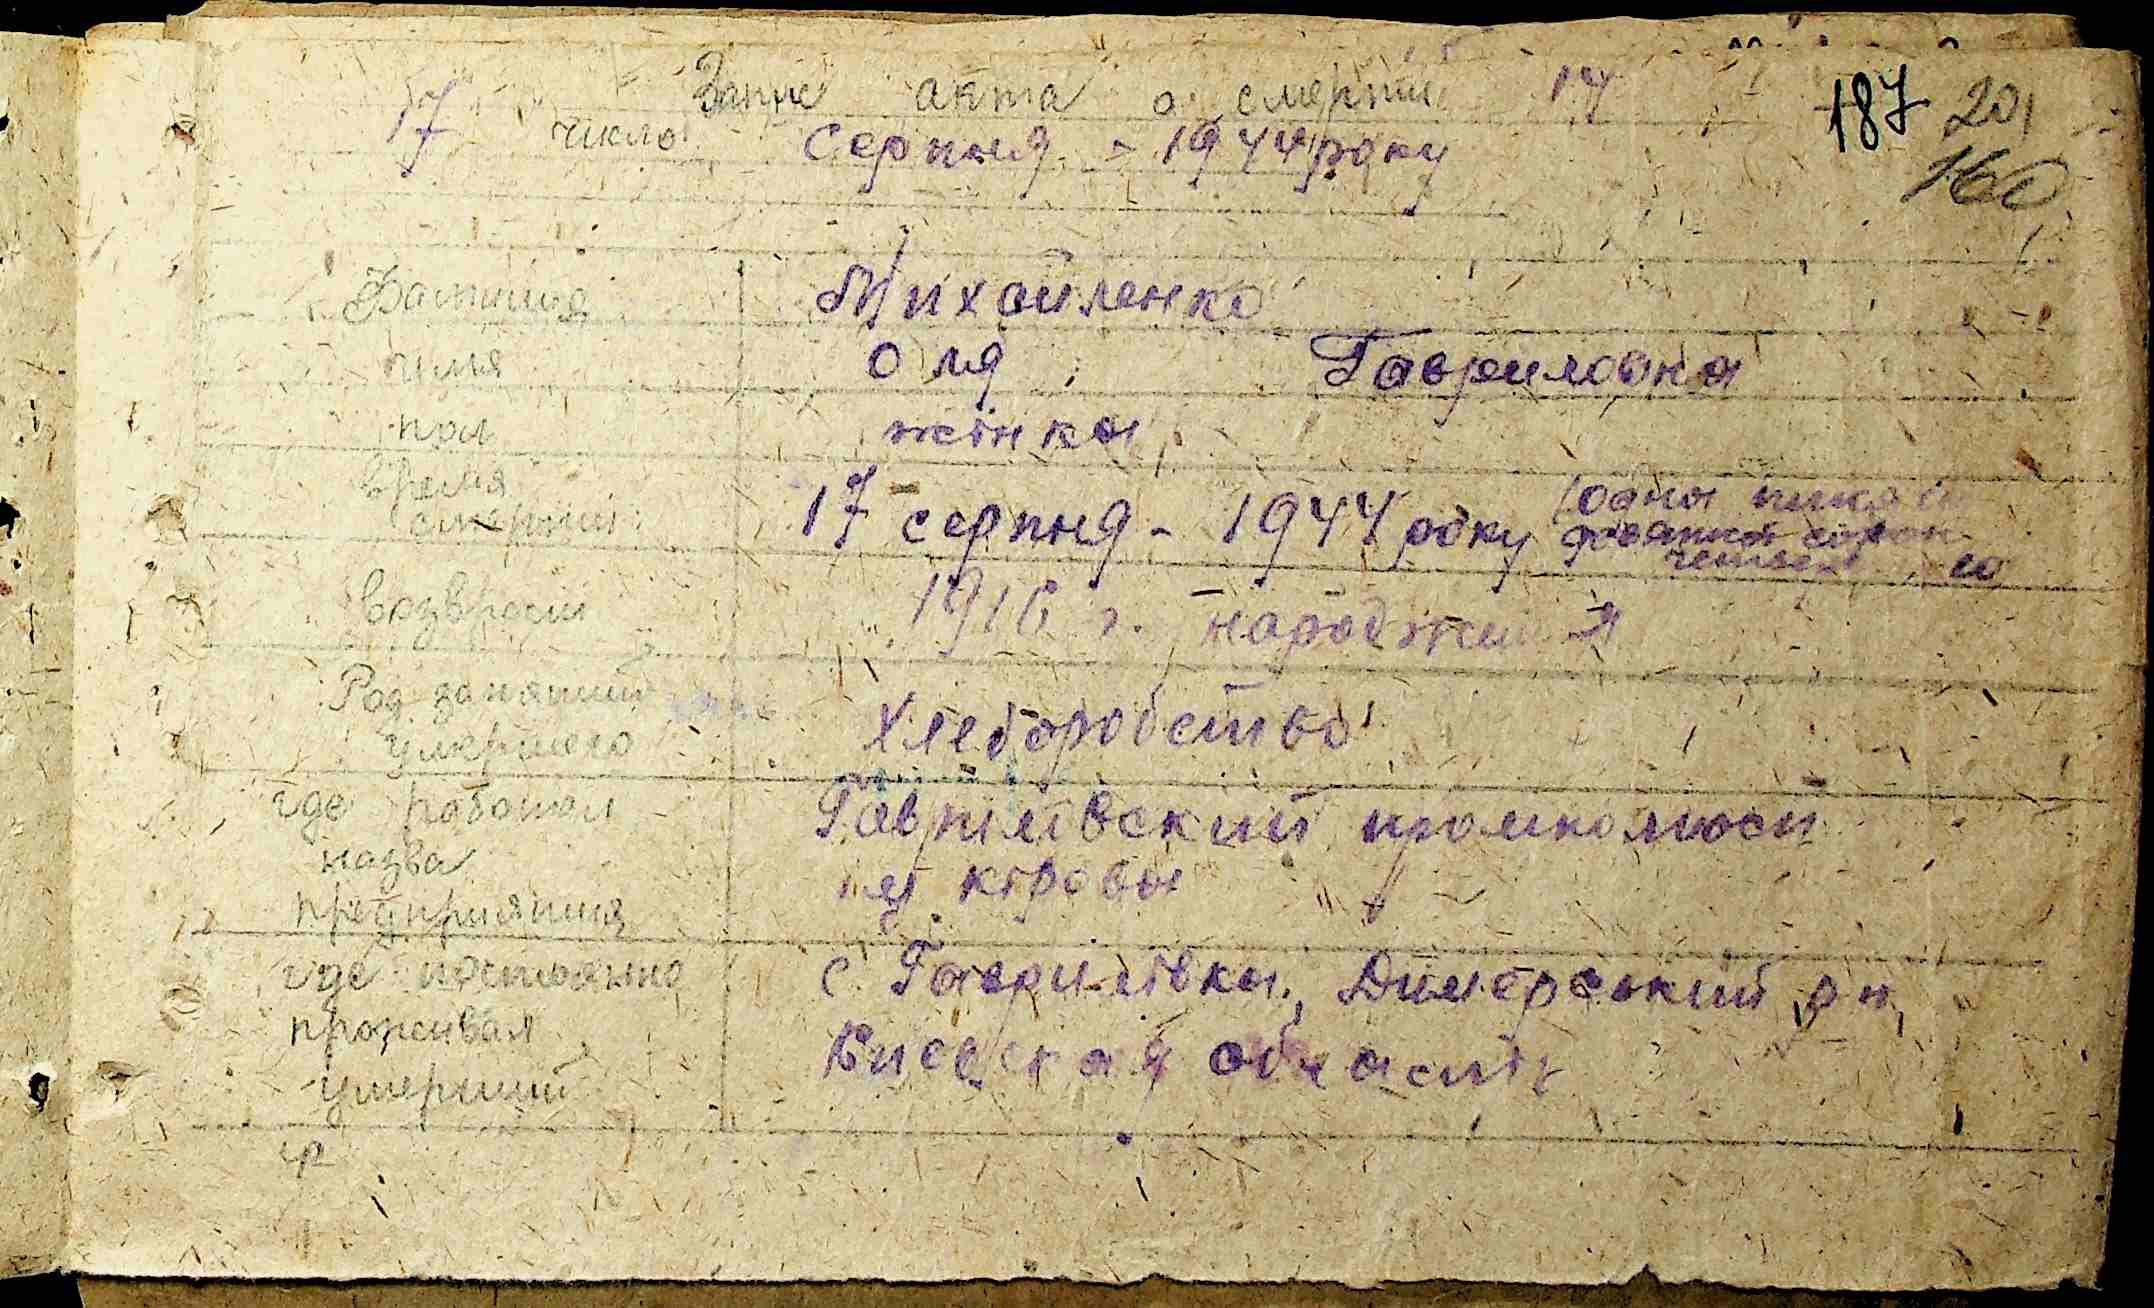 Запис акта о смерти 17
187 201
160
17 число серпня - 1944 року
Фамилия Михайленко
имя Оля Гавриловна
пол жінка
время смерти 17 серпня - 1944 року (одна тисяча
девятсот сорок
четверт
возврост 1916 г. народження
Род занятий
умершого Хлеборобство
где работал Гаврилівский промколгосп
назва кірова
предприятия
где постоянно с Гаврилівка, Димерський р н,
проживал Киевская область
умерший